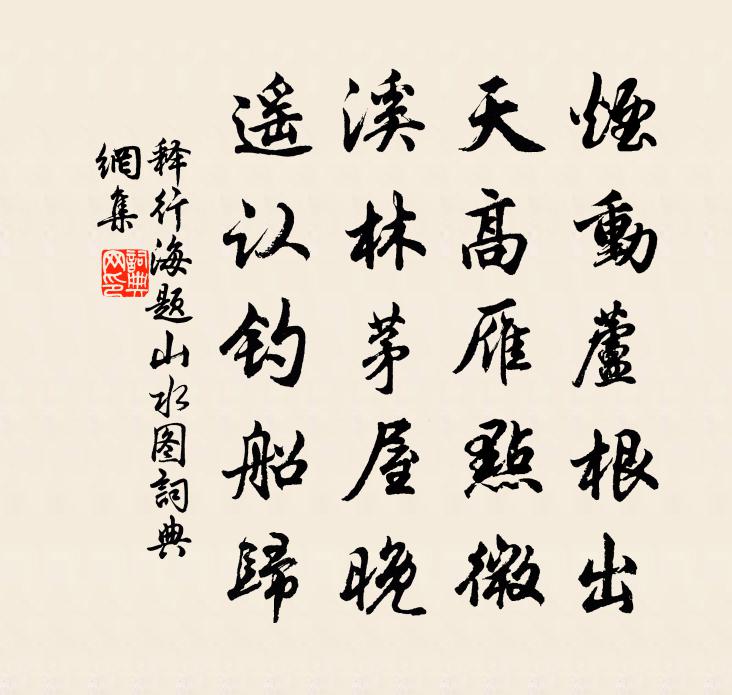 煙動蘆根出
天高雁點微
溪林茅屋晚
遥认钓船歸
释行海题山水图詞典
網集
詞典
网印